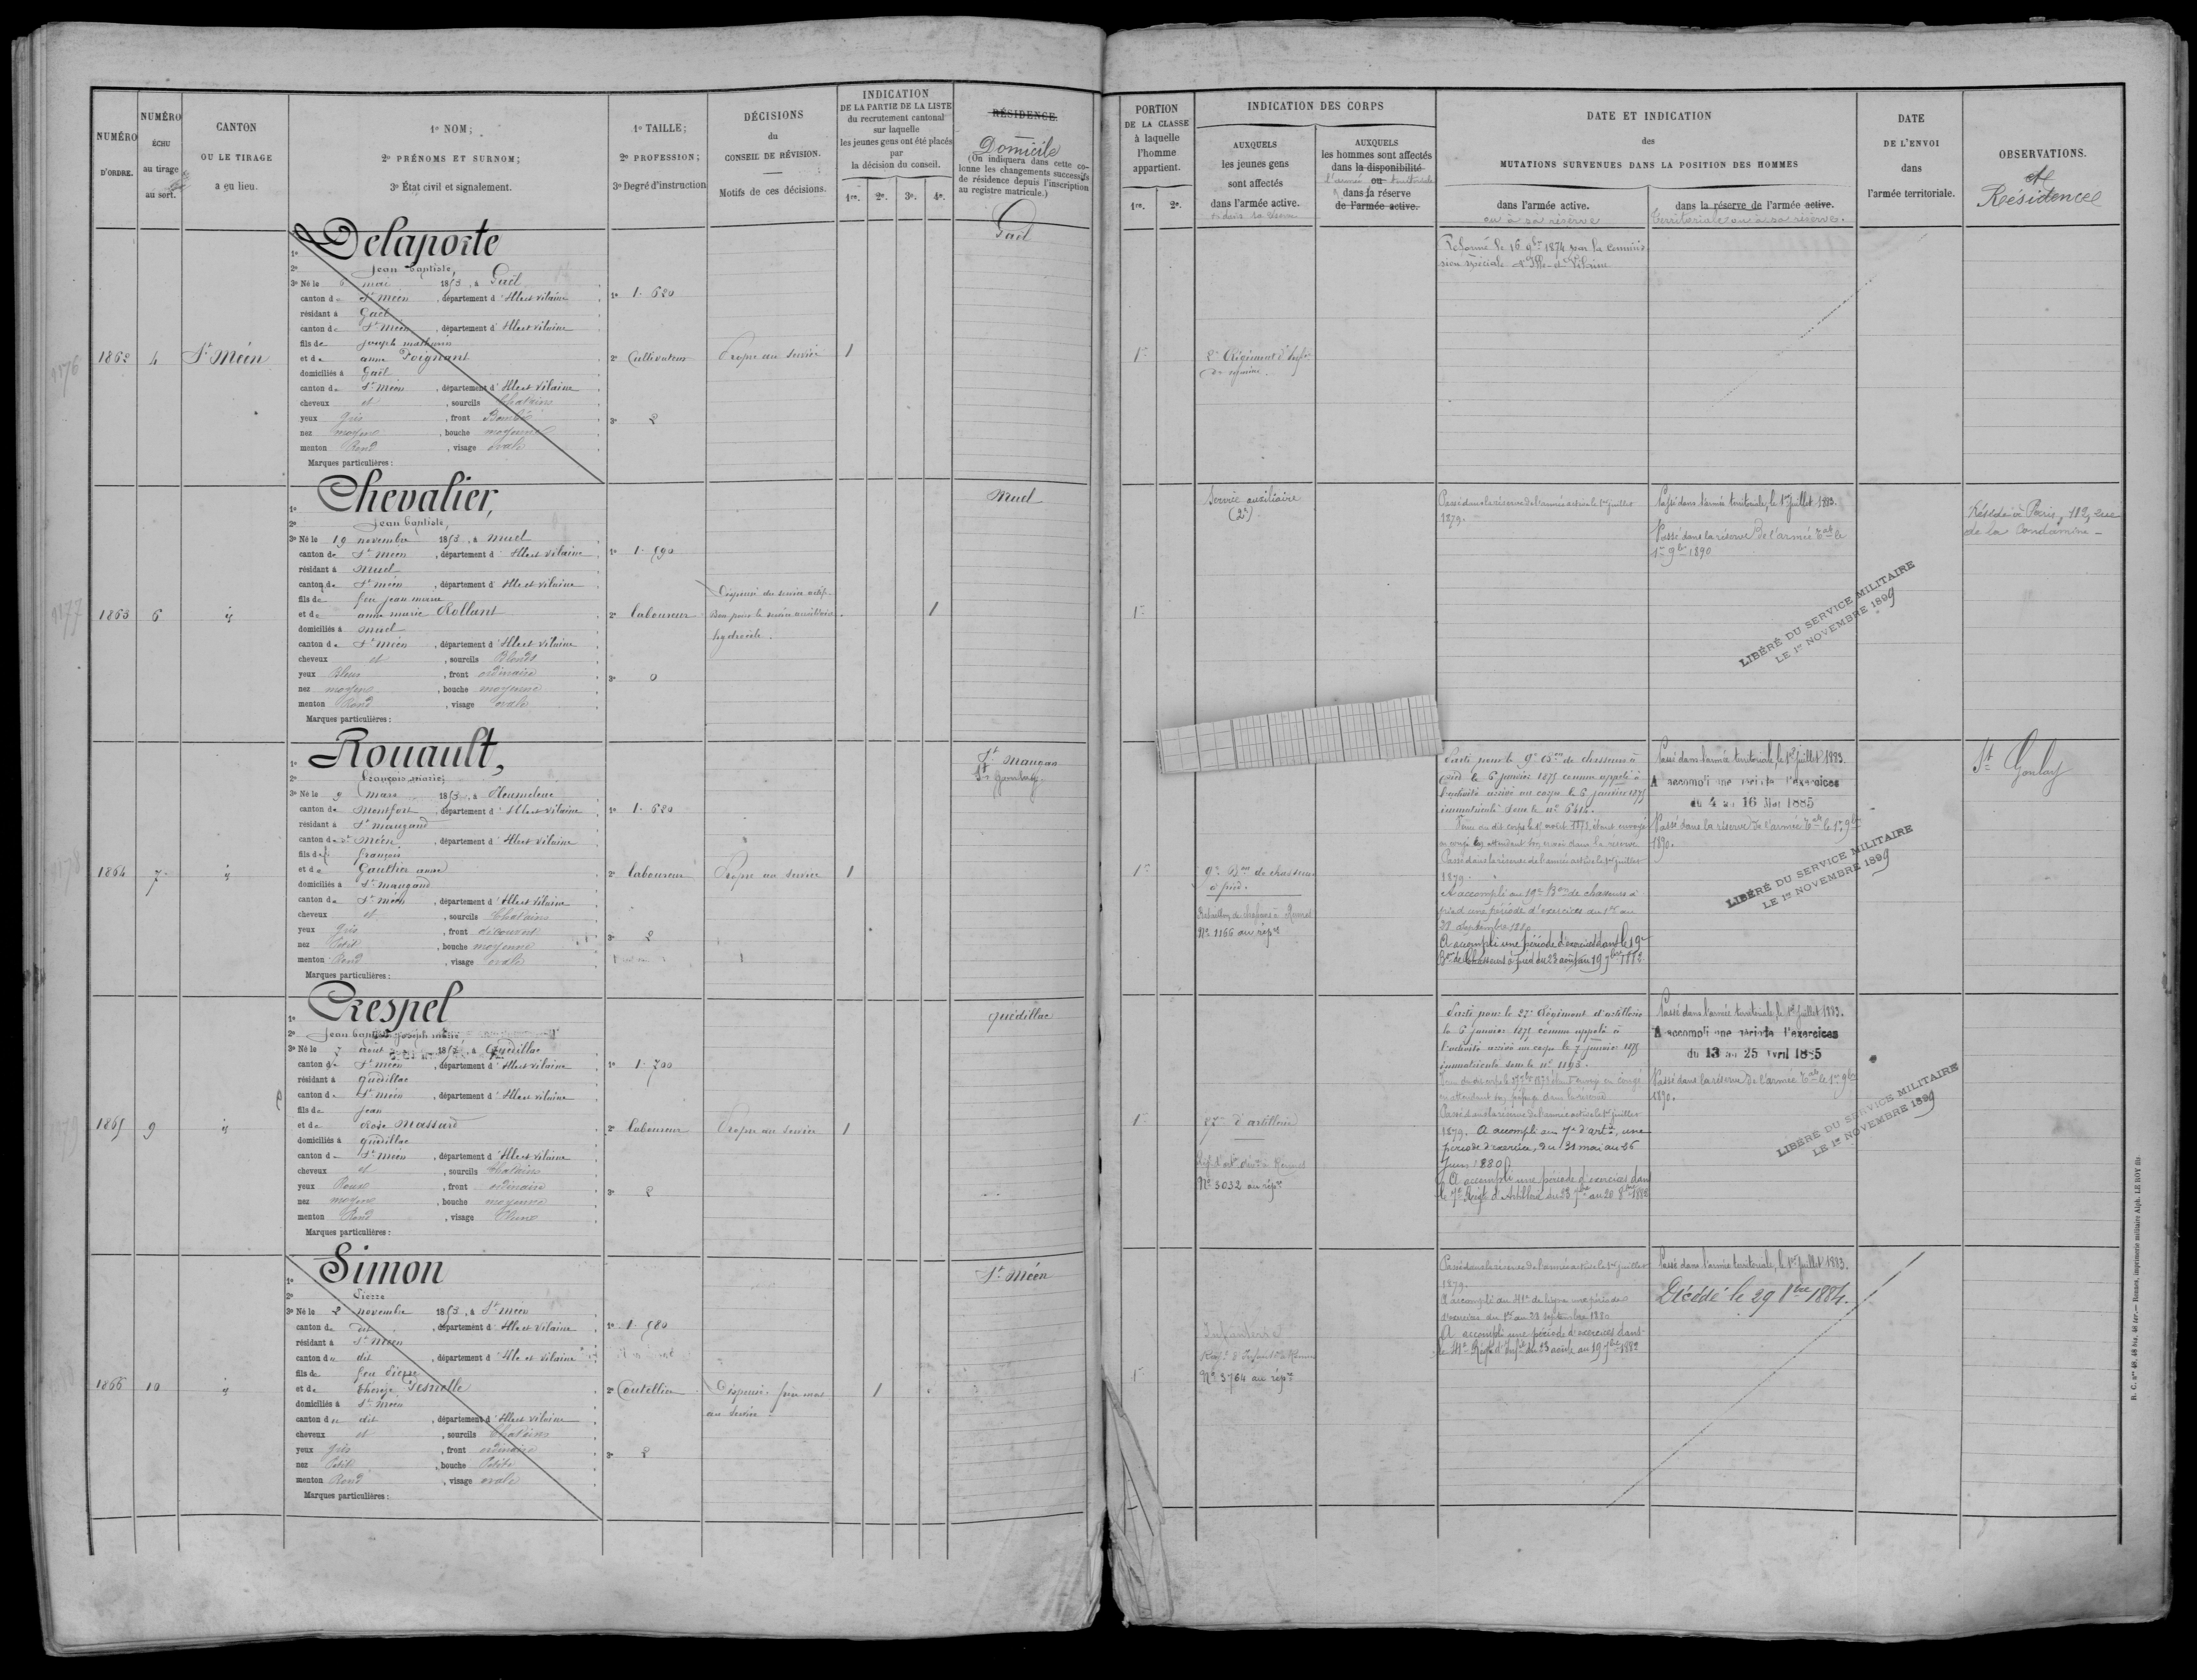 NUMÉRO D'ORDRE.
NUMÉRO ÉCHU au tirage au sort.
CANTON OU LE TIRAGE a eu lieu.
1o NOM;
2o PRÉNOMS ET SURNOM;
3o État civil et signalement.
1o TAILLE;
2o PROFESSION;
3o Degré d'instruction
DÉCISIONS
du
CONSEIL DE RÉVISION.
Motifs de ces décisions.
INDICATION
DE LA PARTIE DE LA LISTE
du recrutement cantonal
sur laquelle
les jeunes gens ont été placés
par
la décision du conseil.
1re. 2e. 3e. 4e.
RÉSIDENCE.
Domicile
(On indiquera dans cette co-
lonne les changements successifs
de résidence depuis l'inscription
au registre matricule.)
PORTION
DE LA CLASSE
à laquelle
l'homme
appartient.
1re. 2e.
INDICATION DES CORPS
AUXQUELS
les jeunes gens
sont affectés
dans l'armée active.
AUXQUELS
les hommes sont affectés
dans la disponibilité
l'armée ou territoriale
dans la réserve
de l'armée active.
DATE ET INDICATION
des
MUTATIONS SURVENUES DANS LA POSITION DES HOMMES
dans l'armée active.
ou à sa réserve
dans la réserve de l'armée active.
territoriale ou à sa réserve.
DATE
DE L'ENVOI
dans
l'armée territoriale.
OBSERVATIONS.
et
Résidence
1862
4
St Méen
1o Delaporte
2o Jean baptiste,
3o Né le 6 mai 1853, à Gaël
canton de St Méen, département d'Ille et Vilaine
résidant à Gaël
canton de St Méen, département d'Ille et Vilaine
fils de joseph mathurin
et de anne Poignant
domiciliés à Gaël
canton de St Méen, département d'Ille et Vilaine
cheveux et, sourcils Chatains
yeux Gris, front Bombé
nez moyen, bouche moyenne
menton Rond, visage ovale
Marques particulières:
1o 1.620
2o Cultivateur
3o 2
Propre au service
1
Gaël
1re
2e Régiment d'Infie
de marine.
Réformé le 16 9bre 1874 par la commis
sion spéciale d'Ille-et-Vilaine
1177
1863
6
id
1o Chevalier,
2o Jean baptiste,
3o Né le 19 novembre 1853, à muel
canton de St méen, département d'Ille et Vilaine
résidant à Muel
canton de St méen, département d'Ille et Vilaine
fils de feu jean marie
et de anne marie Rollant
domiciliés à muel
canton de St Méen, département d'Ille et Vilaine
cheveux et, sourcils Blonds
yeux Bleus, front ordinaire
nez moyen, bouche moyenne
menton Rond, visage ovale
Marques particulières:
1o 1.590
2o laboureur
3o 0
Dispensé du service actif.
Bon pour le service auxiliaire.
hydrocèle.
1
Muel
1re
Service auxiliaire
(2e)
Passé dans la réserve de l'armée active le 1er juillet
1879.
Passé dans l'armée territoriale, le 1er juillet 1883.
Passé dans la réserve de l'armée tale le
1er 9bre 1890
LIBÉRÉ DU SERVICE MILITAIRE
LE 1er NOVEMBRE 1899
Réside à Paris, 112, rue
de la Condamine
1864
7
id
1o Rouault,
2o François marie,
3o Né le 9 mars 1853, à Pleumeleuc
canton de Montfort, département d'Ille et Vilaine
résidant à St maugand
canton de St Méen, département d'Ille et Vilaine
fils de françois
et de Gaultier anne
domiciliés à St maugand
canton de St Méen, département d'Ille et Vilaine
cheveux et, sourcils Chatains
yeux Gris, front découvert
nez Petit, bouche moyenne
menton Rond, visage ovale
Marques particulières:
1o 1.620
2o laboureur
3o 2
Propre au service
1
St Maugan
St Gonlay
1re
9e Bon de chasseurs
à pied.
Bataillon de chasseurs à Rennes
No 1166 au répre
Parti pour le 9e Bon de chasseurs à
pied le 6 janvier 1875 comme appelé à
l'activité arrivé au corps le 6 janvier 1875
immatriculé sous le no 6414.
en congé en attendant son passage dans la réserve
Passé dans la réserve de l'armée active le 1er juillet
1879.
A accompli au 19e Bon de chasseurs à
pied une période d'exercices du 1er au
28 septembre 1880
A accompli une période d'exercices dans le 19e
Bon de Chasseurs à pied du 23 août au 19 7bre 1882
Passé dans l'armée territoriale, le 1er juillet 1883.
A accompli une période d'exercices
du 4 au 16 Mai 1885
Passé dans la réserve de l'armée tale le 1er 9bre
1890.
LIBÉRÉ DU SERVICE MILITAIRE
LE 1er NOVEMBRE 1899
St Gonlay
1865
9
id
1o Crespel
2o Jean baptiste joseph marie
3o Né le 7 août 1853, à Quédillac
canton de St méen, département d'Ille et Vilaine
résidant à quédillac
canton de St méen, département d'Ille et Vilaine
fils de jean
et de Rose Massard
domiciliés à quédillac
canton de St méen, département d'Ille et Vilaine
cheveux et, sourcils Chatains
yeux Roux, front ordinaire
nez moyen, bouche moyenne
menton Rond, visage Plein
Marques particulières:
1o 1.700
2o laboureur
3o 2
Propre au service
1
quédillac
1re
27e d'artillerie
No 3032 au répre
Parti pour le 27e Régiment d'artillerie
le 6 janvier 1875 comme appelé à
l'activité arrivé au corps le 7 janvier 1875
immatriculé sous le no 1193.
en attendant son passage dans la réserve
Passé dans la réserve de l'armée active le 1er juillet
1879. A accompli au 7e d'artie, une
période d'exercice, du 31 mai au 26
Juin 1880
A accompli une période d'exercices dans
le 7e Régt d'Artillerie du 23 7bre au 20 8bre 1882
Passé dans l'armée territoriale, le 1er juillet 1883.
A accompli une période d'exercices
du 13 au 25 Avril 1885
Passé dans la réserve de l'armée tale le 1er 9bre
1890.
LIBÉRÉ DU SERVICE MILITAIRE
LE 1er NOVEMBRE 1899
1866
10
id
1o Simon
2o Pierre
3o Né le 2 novembre 1853, à St méen
canton de dit, département d'Ille et Vilaine
résidant à St Méen
canton de dit, département d'Ille et Vilaine
fils de feu Pierre
et de thérèse Desrielle
domiciliés à St Méen
canton de dit, département d'Ille et Vilaine
cheveux et, sourcils Chatains
yeux Gris, front ordinaire
nez Petit, bouche Petite
menton Rond, visage ovale
Marques particulières:
1o 1.580
2o Coutellier
3o 2
Dispensé. frère mort
au service.
1
St Méen
1re
Infanterie
Régt d'Infanterie Rennes
No 3764 au répre
Passé dans la réserve de l'armée active le 1er juillet
1879.
A accompli au 41e de ligne une période
d'exercices du 1er au 28 septembre 1880
A accompli une période d'exercices dans
le 41e Régt d'Infie du 23 août au 19 7bre 1882
Passé dans l'armée territoriale, le 1er juillet 1883.
Décédé le 29 8bre 1884.
R. C. nos 48, 48 bis, 48 ter.— Rennes, imprimerie militaire Alph. LE ROY fils